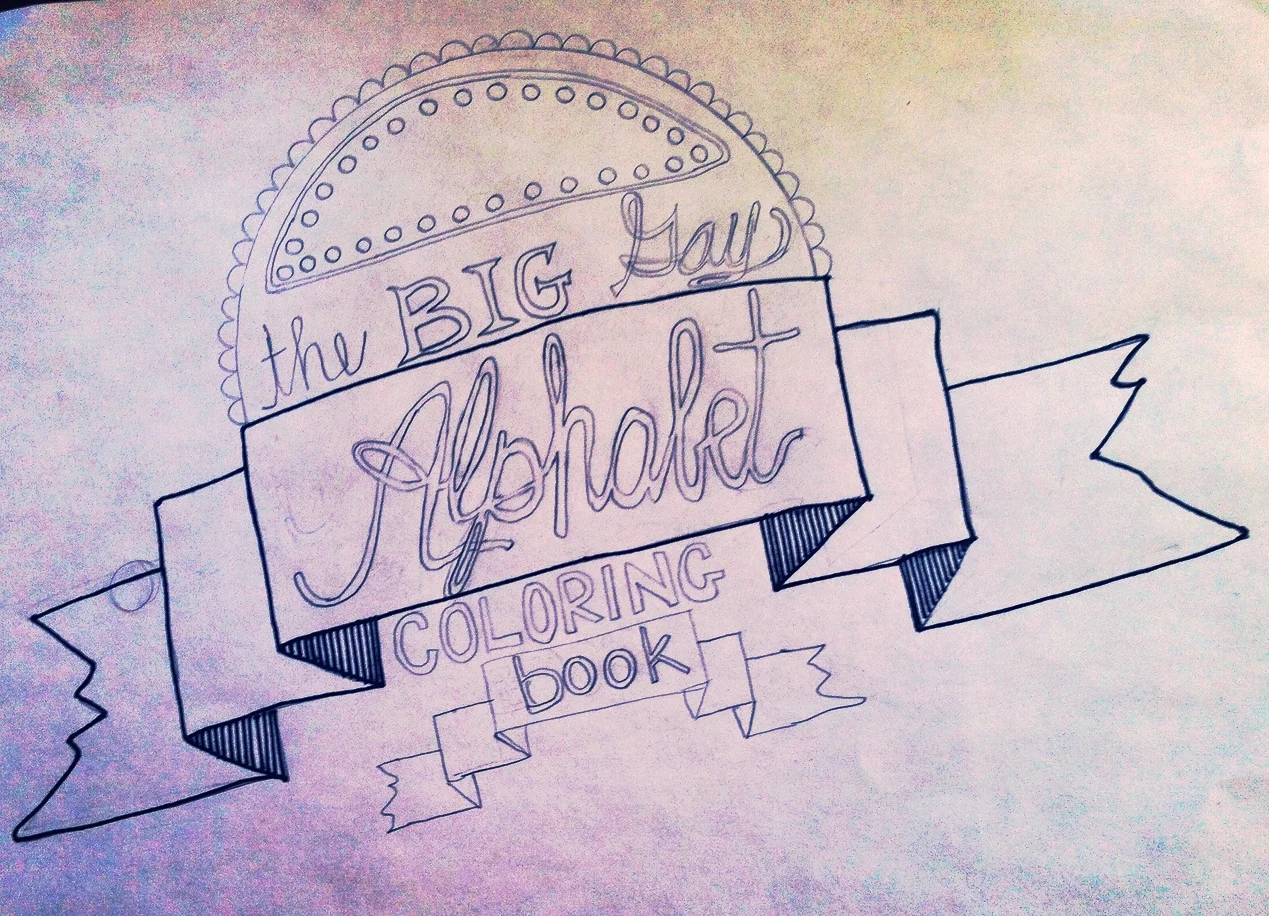 the BIG Gay
Alphabet
COLORING
book